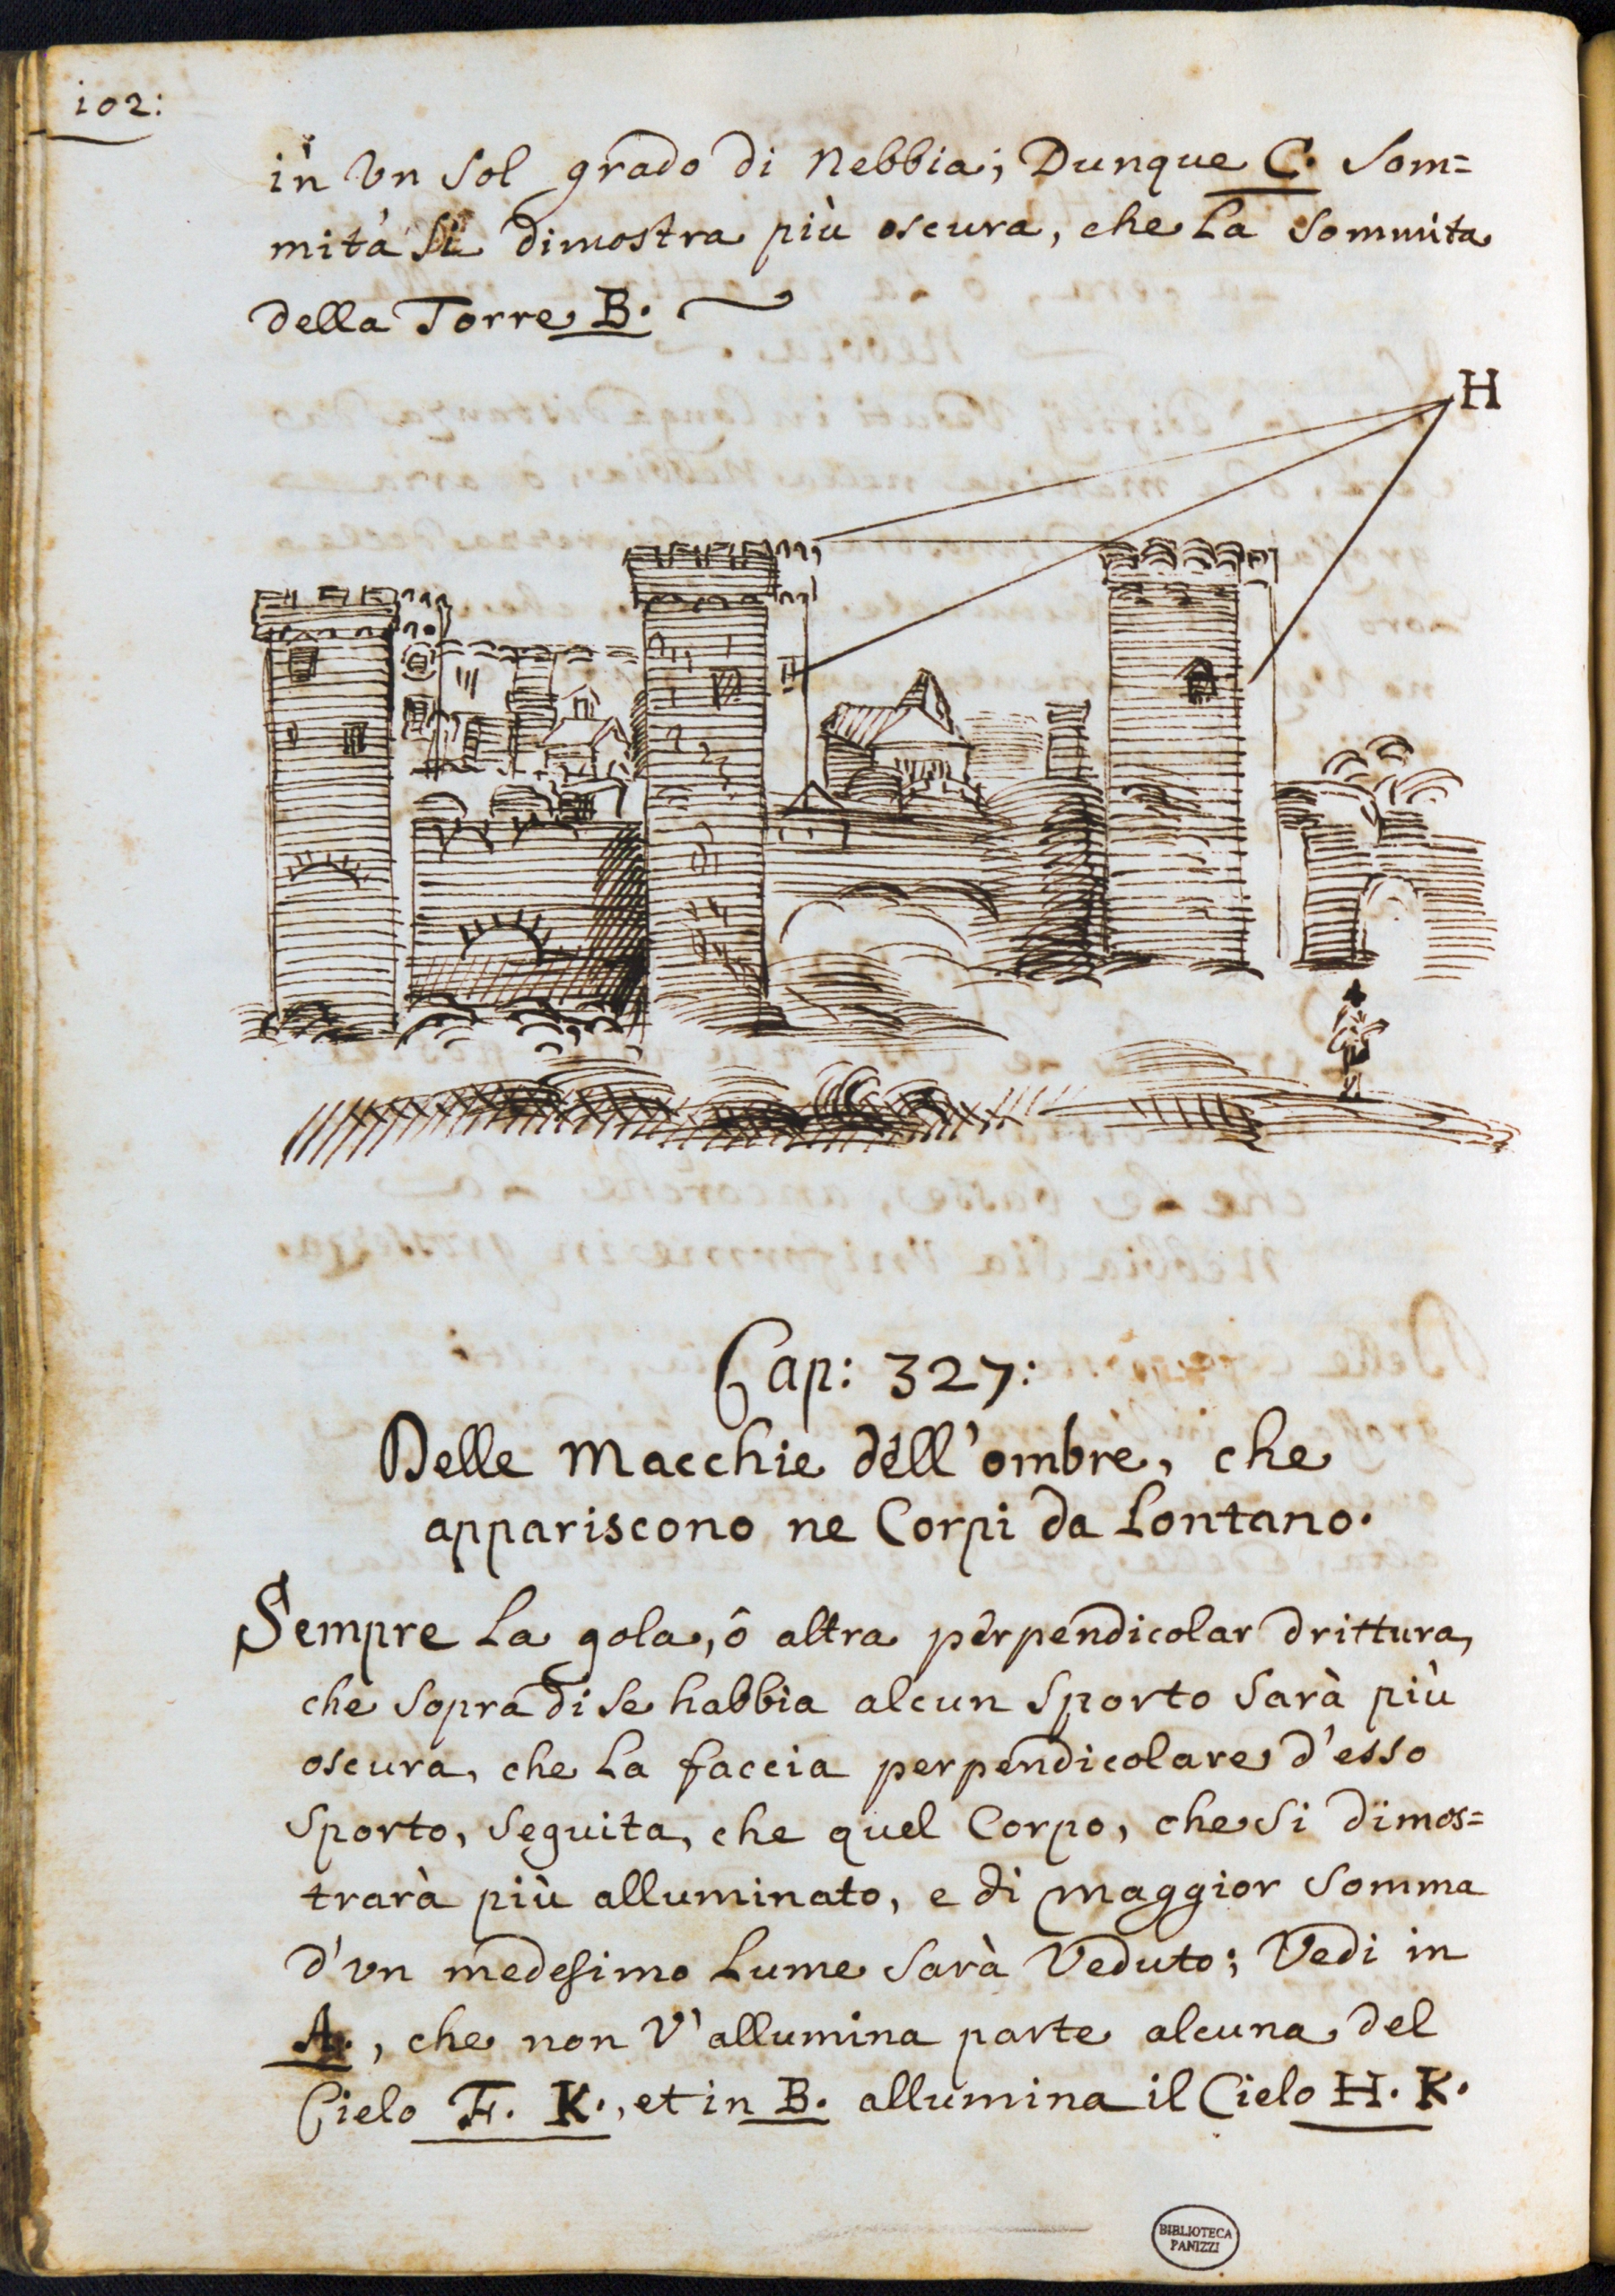 102:
in Vn Sol grado di Nebbia; Dunque C. Som=
mità Si dimostra più oscura, che La Sommita
della Torre B.
H
Cap: 327:
Delle Macchie dell'ombre, che
appariscono ne Corpi da Lontano.
Sempre La gola, ô altra perpendicolar drittura,
che Sopra di Se habbia alcun Sporto Sarà più
oscura, che La faccia perpendicolare d'esso
Sporto, Seguita, che quel Corpo, che Si dimos=
trarà più alluminato, e di Maggior Somma
d'vn medesimo Lume Sarà Veduto; Vedi in
A., che non V'allumina parte alcuna del
Cielo F. K., et in B. allumina il Cielo H. K.
BIBLIOTECA
PANIZZI